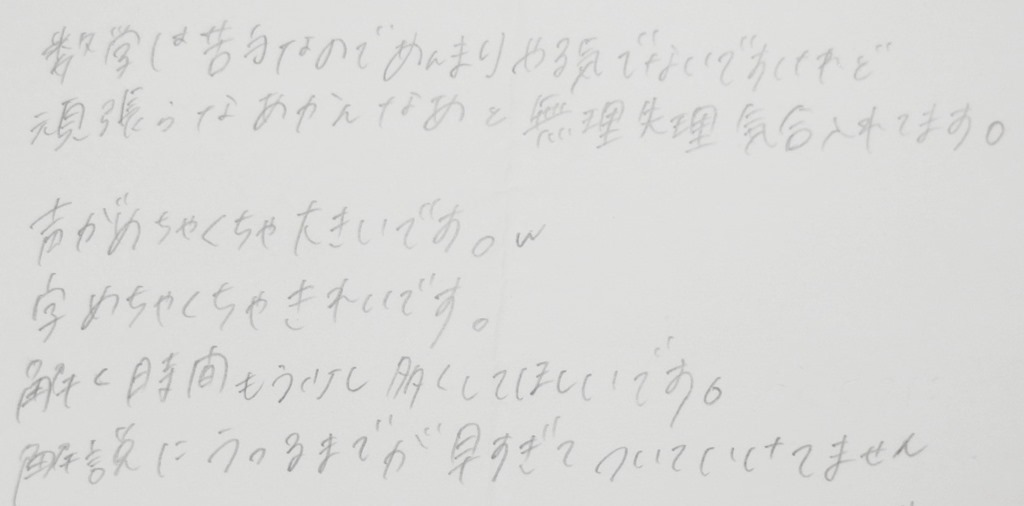 数学は苦手なのであんまりやる気でないですけれど
頑張らなあかんなあと無理矢理気合入れてます。
声がめちゃくちゃ大きいです。w
字めちゃくちゃきれいです。
解く時間もう少し多くしてほしいです。
解説にうつるまでが早すぎてついていけてません